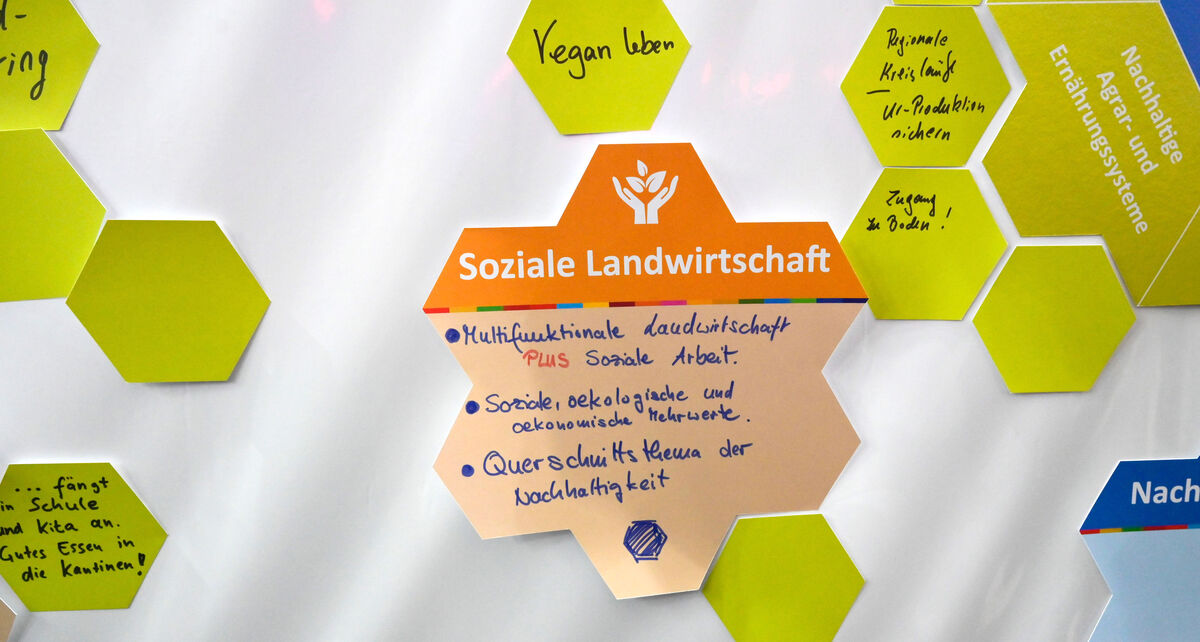 ring
Vegan leben
Regionale
Kreisläufe
Ur-Produktion
sichern
Nachhaltige
Agrar- und
Ernährungssysteme
Zugang
zu Boden!
Soziale Landwirtschaft
• Multifunktionale Landwirtschaft
PLUS Soziale Arbeit.
• Soziale, oekologische und
oekonomische Mehrwerte.
• Querschnittsthema der
Nachhaltigkeit
... fängt
in Schule
und Kita an.
Gutes Essen in
die Kantinen!
Nach